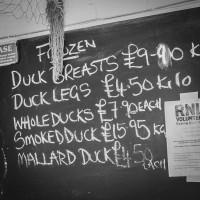 FROZEN
DUCK BREASTS £9-90 KILO
DUCK LEGS £4.50 KILO
WHOLE DUCKS £7.90 EACH
SMOKED DUCK £15.95 KG
MALLARD DUCK £4.50 EACH
RNLI
VOLUNTEER